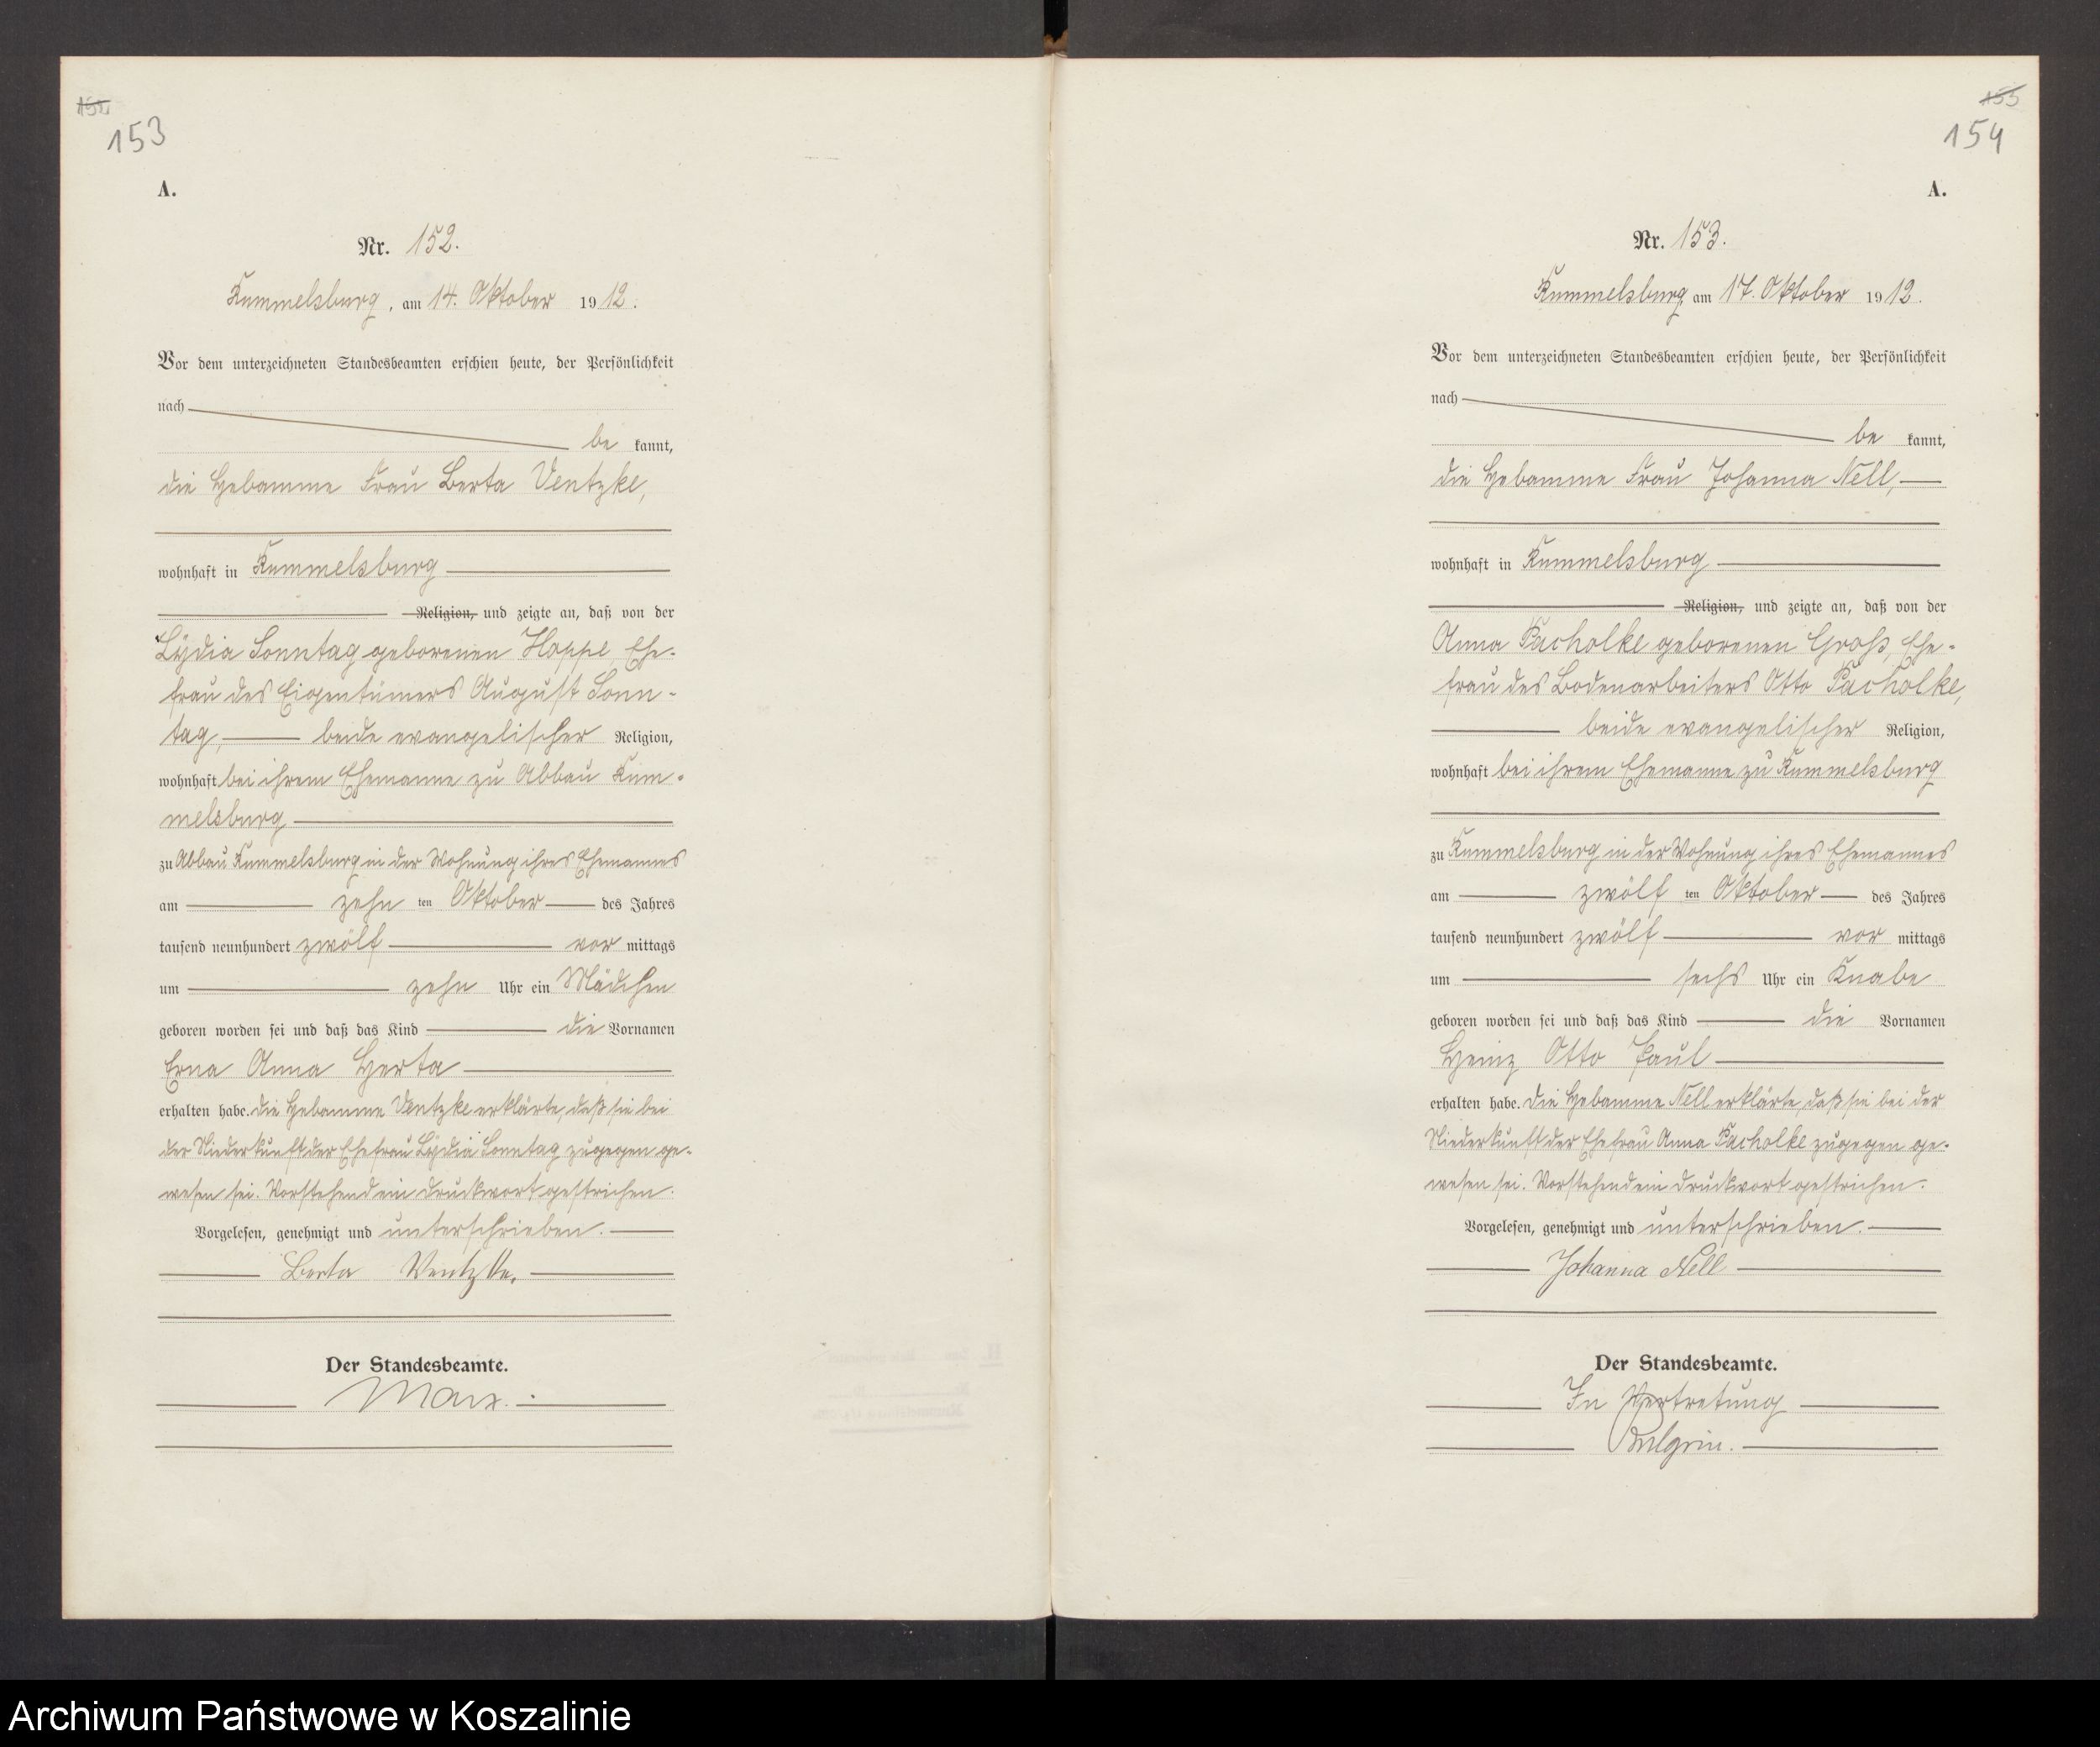 153
A.
Nr. 152.
Rummelsburg, am 14. Oktober 1912.
Vor dem unterzeichneten Standesbeamten erschien heute, der Persönlichkeit
nach
be kannt,
die Hebamme Frau Berta Ventzke,
wohnhaft in Rummelsburg
Religion, und zeigte an, daß von der
Lydia Sonntag geborenen Hoppe, Ehe-
frau des Eigentümers August Sonn-
tag, beide evangelischer Religion,
wohnhaft bei ihrem Ehemanne zu Abbau Rum-
melsburg
zu Abbau Rummelsburg in der Wohnung ihres Ehemannes
am zehn ten Oktober des Jahres
tausend neunhundert zwölf vor mittags
um zehn Uhr ein Mädchen
geboren worden sei und daß das Kind die Vornamen
Erna Anna Herta
erhalten habe. Die Hebamme Ventzke erklärte, daß sie bei
der Niederkunft der Ehefrau Lydia Sonntag zugegen ge-
wesen sei. Vorstehend ein Druckwort gestrichen.
Vorgelesen, genehmigt und unterschrieben.
Berta Ventzke.
Der Standesbeamte.
Marx.
155
154
A.
Nr. 153.
Rummelsburg am 17. Oktober 1912.
Vor dem unterzeichneten Standesbeamten erschien heute, der Persönlichkeit
nach
be kannt,
die Hebamme Frau Johanna Nell,
wohnhaft in Rummelsburg
Religion, und zeigte an, daß von der
Anna Pacholke geborenen Groß, Ehe-
frau des Bodenarbeiters Otto Pacholke,
beide evangelischer Religion,
wohnhaft bei ihrem Ehemanne zu Rummelsburg
zu Rummelsburg in der Wohnung ihres Ehemannes
am zwölf ten Oktober des Jahres
tausend neunhundert zwölf vor mittags
um sechs Uhr ein Knabe
geboren worden sei und daß das Kind die Vornamen
Heinz Otto Paul
erhalten habe. Die Hebamme Nell erklärte, daß sie bei der
Niederkunft der Ehefrau Anna Pacholke zugegen ge-
wesen sei. Vorstehend ein Druckwort gestrichen.
Vorgelesen, genehmigt und unterschrieben.
Johanna Nell
Der Standesbeamte.
In Vertretung
Archiwum Państwowe w Koszalinie